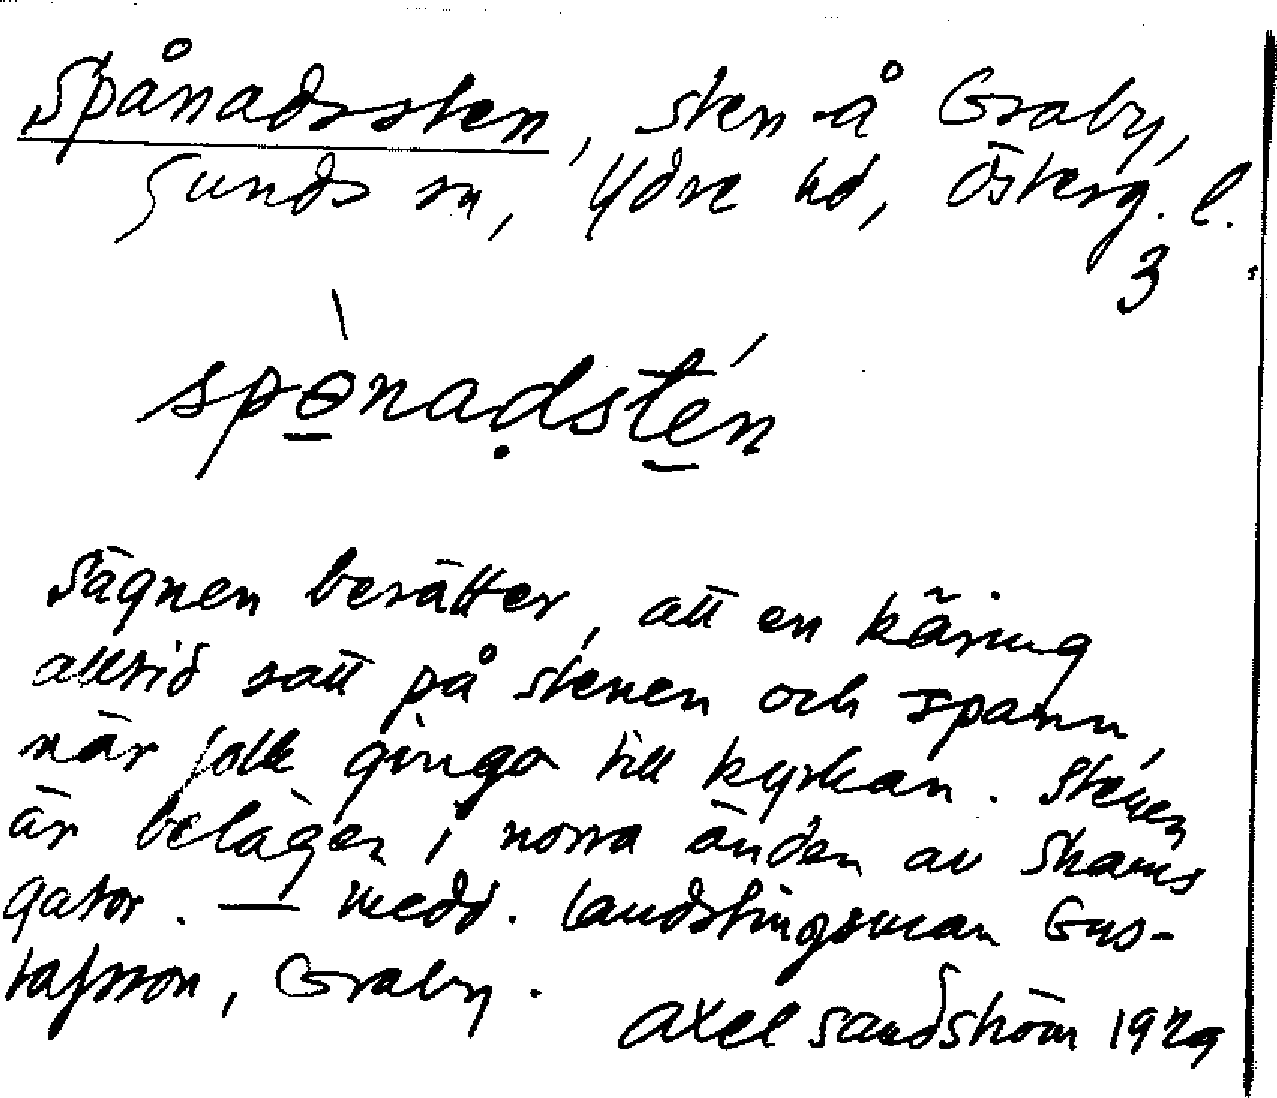 Spånadssten, sten å Graby,
Sunds sn, Ydre hd, Österg. l.
3
spò̱nadṣté̱n
Sägnen berätter, att en käring
alltid satt på stenen och spann
när folk gingo till kyrkan. Stenen
är belägen i norra änden av Skams
gator. — Medd. landstingsman Gus-
tafsson, Graby.
Axel Sandström 1929